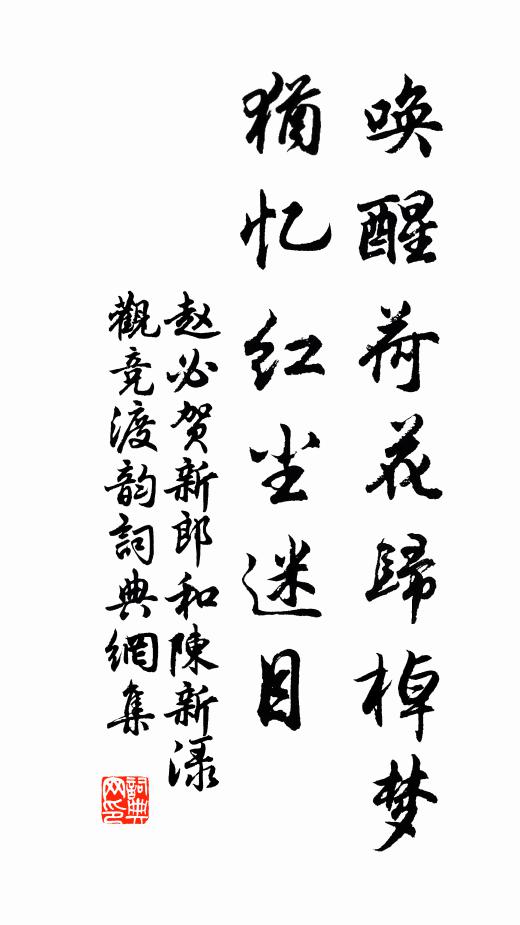 唤醒荷花歸棹梦
猶忆红尘迷目
赵必贺新郎和陳新渌
觀竞渡韵詞典網集
詞典网印